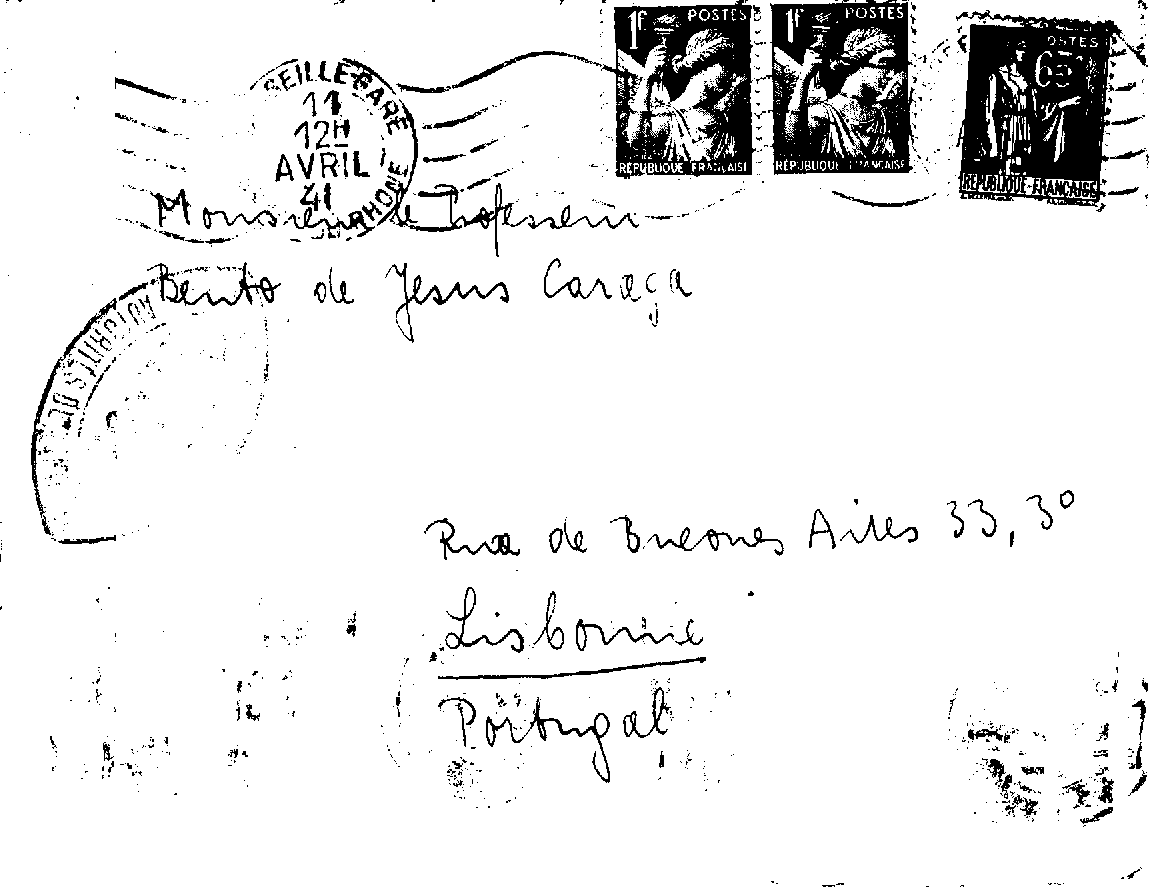 1F POSTES
RÉPUBLIQUE FRANÇAISE
1F POSTES
RÉPUBLIQUE FRANÇAISE
POSTES
65c
RÉPUBLIQUE FRANÇAISE
SEILLE-GARE
11
12H
AVRIL
41
RHONE
Monsieur le Professeur
Bento de Jesus Caraça
AUTORITÉS DE
Rua de Bueones Aires 33, 3º
Lisbonne
Portugal